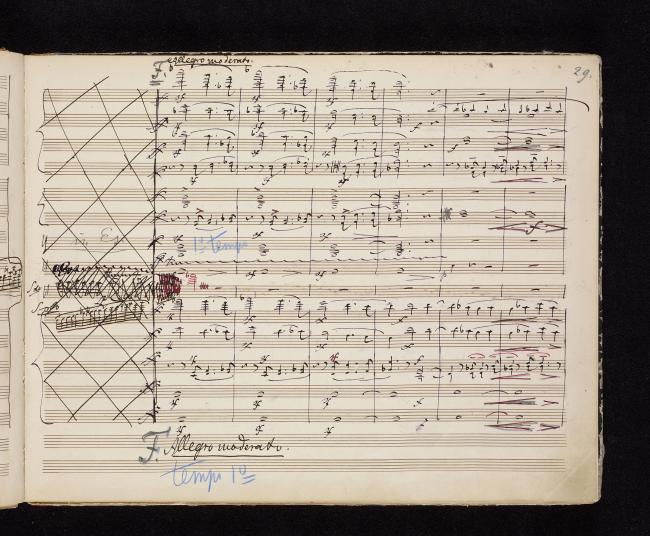 F. Allegro moderato.
29.
in Es
1º tempo
F. Allegro moderato.
tempo 1º